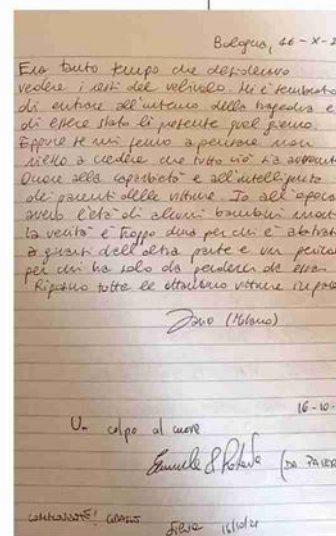 Bologna, 16-X-2
Era tanto tempo che desideravo
vedere i resti del velivolo. Mi è sembrato
di entrare all'interno della tragedia e
di essere stato lì presente quel giorno.
Eppure se mi fermo a pensare non
riesco a credere che tutto ciò sia avvenuto
Onore alla caparbietà e all'intelligenza
dei parenti delle vittime. Io all'epoca
avevo l'età di alcuni bambini morti
la verità è troppo dura per chi è
a quanti dall'altra parte e un
per chi ha solo da perdere da essa.
Riposino tutte le ottantuno vittime in pace
(Milano)
16-10-
Un colpo al cuore
(DA PALER
16/10/21